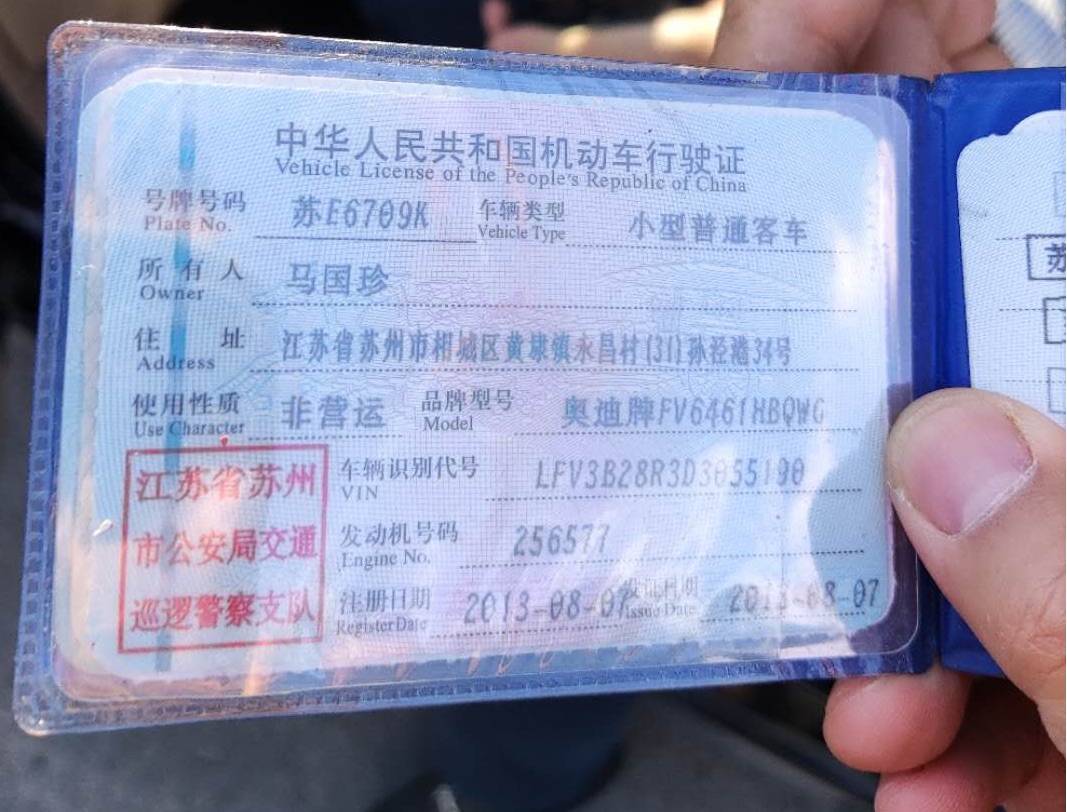 中华人民共和国机动车行驶证
Vehicle License of the People's Republic of China
号牌号码 苏E6709K 车辆类型 小型普通客车
Plate No. Vehicle Type
所有人 马国珍
Owner
住址 江苏省苏州市相城区黄埭镇永昌村(31)孙泾港34号
Address
使用性质 非营运 品牌型号 奥迪牌FV6461HBQWG
Use Character Model
车辆识别代号 LFV3B28R3D3055190
VIN
发动机号码 256577
Engine No.
注册日期 2013-08-07 发证日期 2013-08-07
Register Date Issue Date
江苏省苏州
市公安局交通
巡逻警察支队
苏